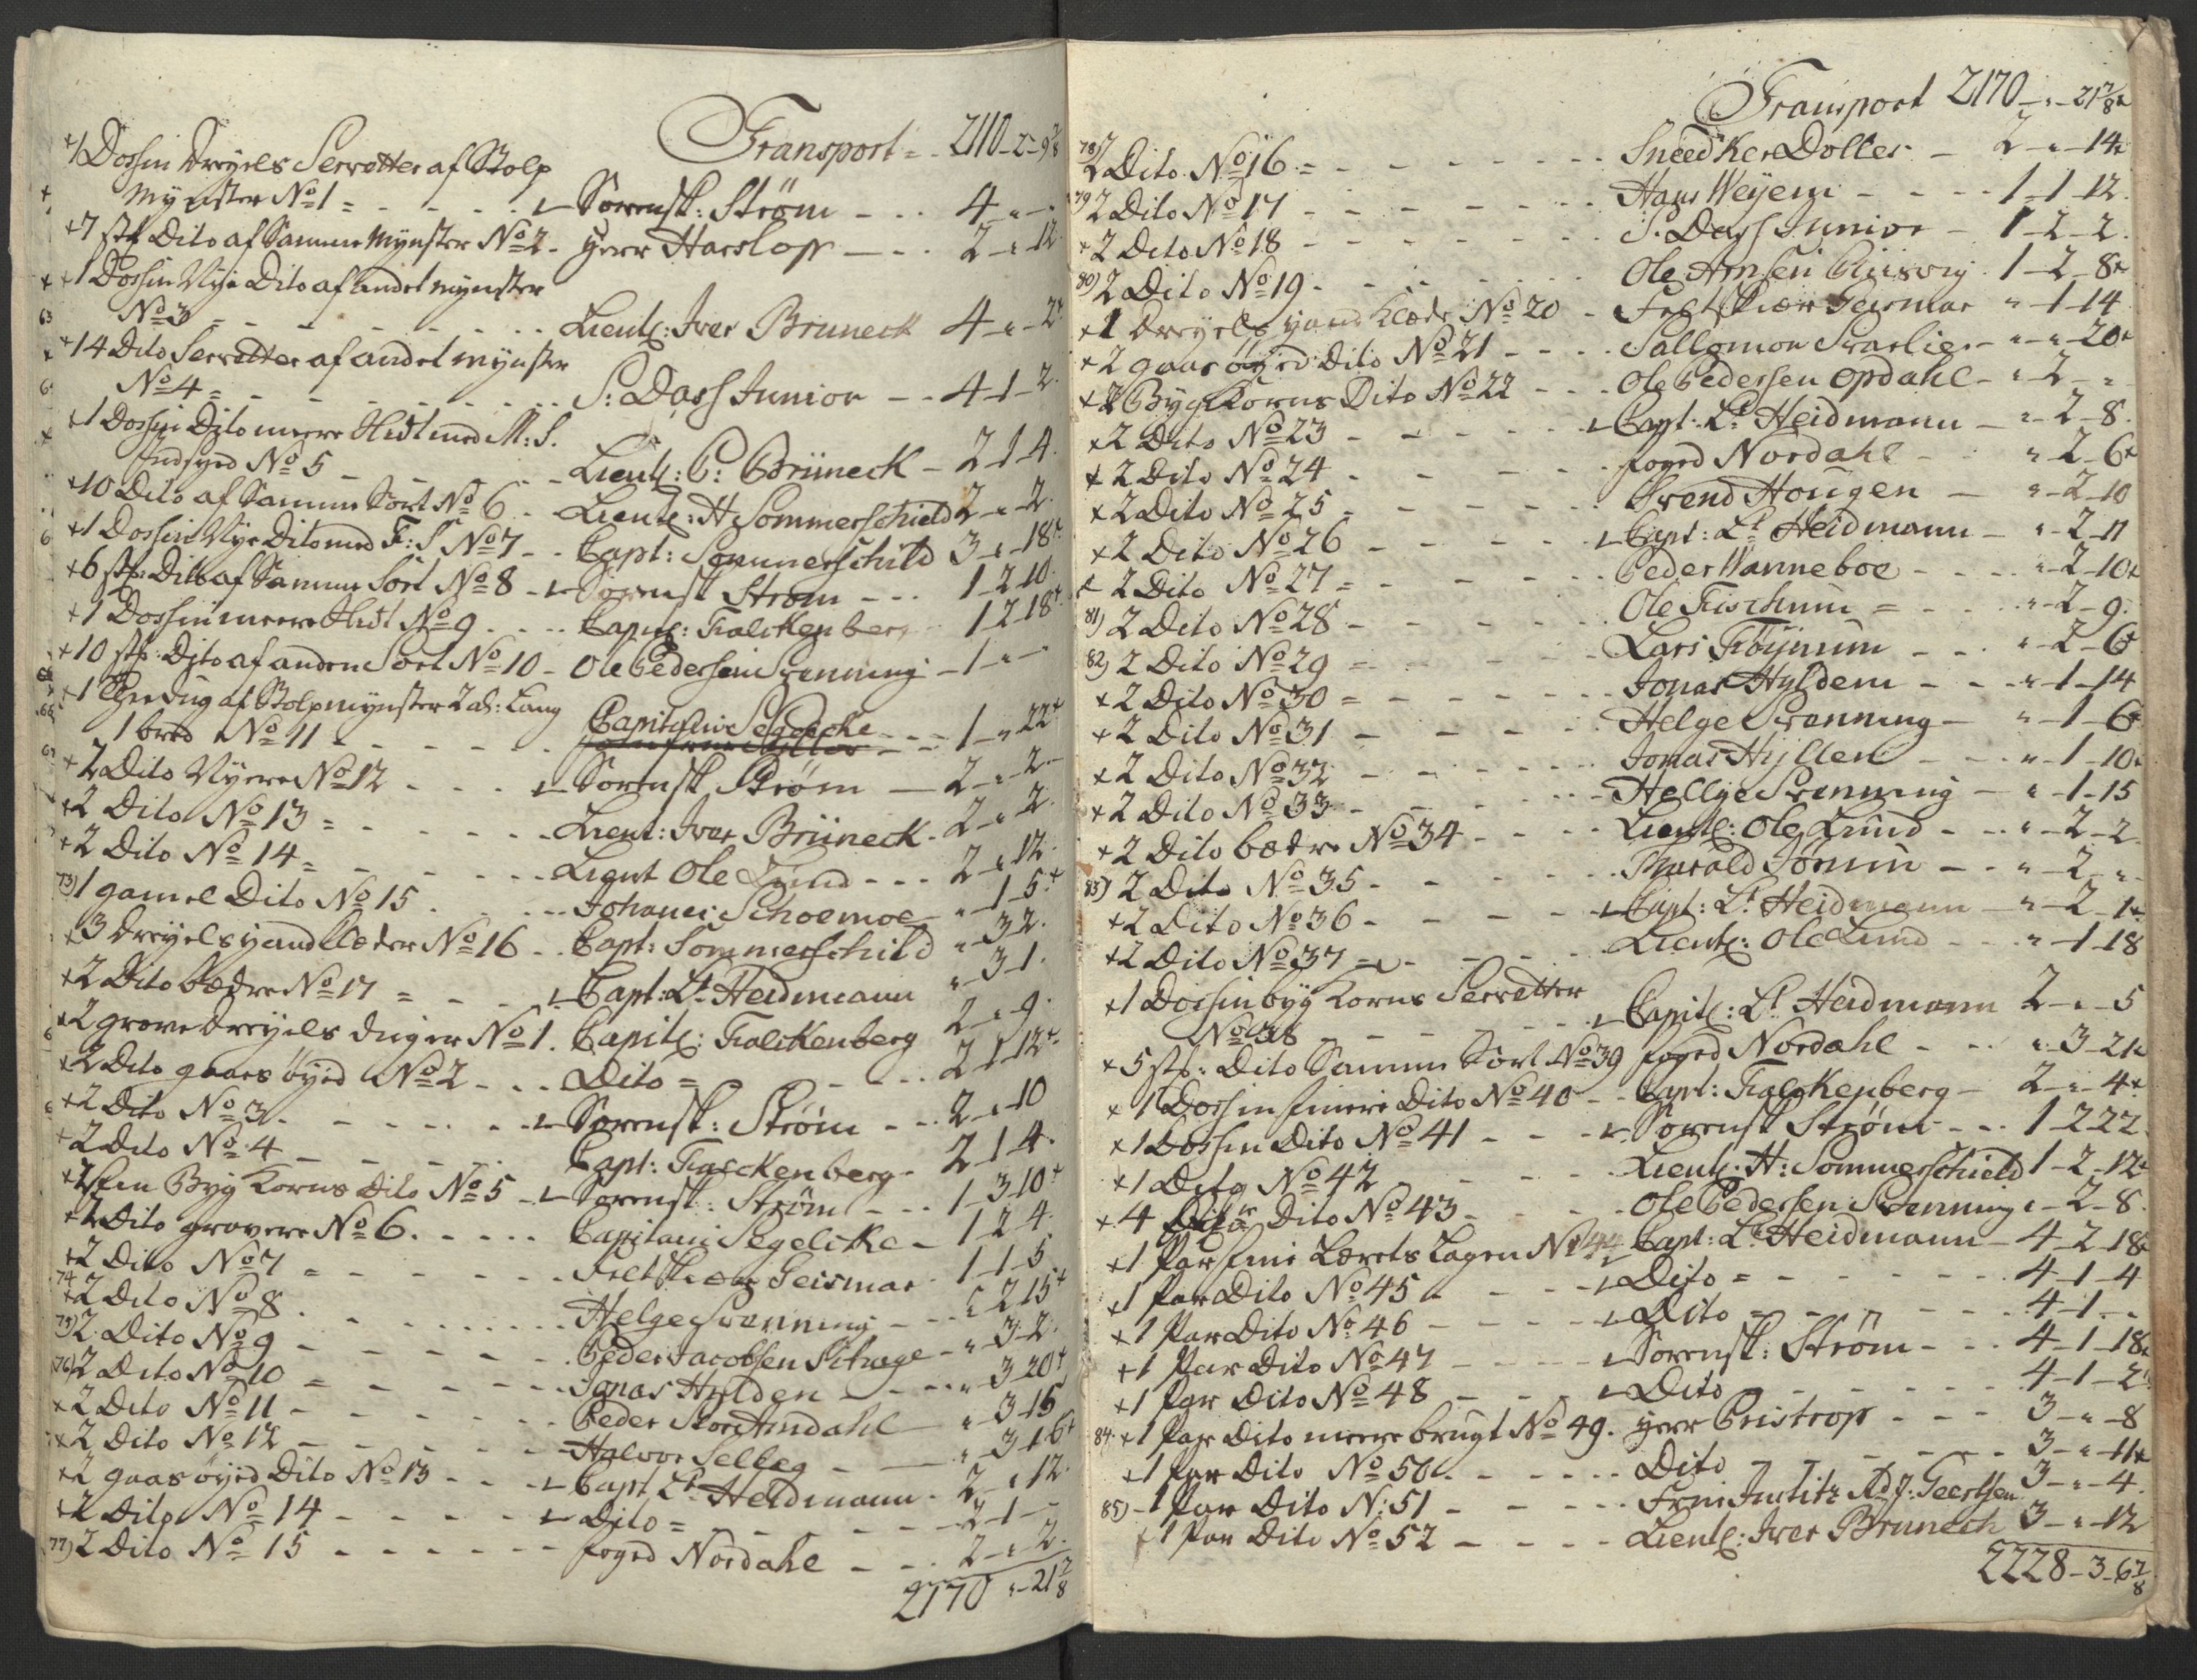 Transport = 2110-2-9 7/8
+1 Dossin Dreyels Servetter af Stolp
Mynster No 1 = - - - - Sorensk: Strøm - - - 4 - " -
+7 stk Dito af Samme Mynster No 2 - Herr Harslop - - - 2 - " - 12
+1 Dossin Nye Dito af andet mynster
No 3 = - - - - Lieutn: Iver Bruneck 4 - " - 2+
+14 Dito Servetter af andet mynster
No 4 = - - - - S: Dass Junior - - 4-1-2
+1 Dossin Dito meere Slidt med M: S.
Indsyed No 5 - - - - Lieutn: C: Brüneck - 2-1-4
+10 Dito af Samme Sort No 6 - - Lieutn: H Sommerschield 2 - " - 2
+1 Dossin Nye Dito med F: S No 7 - - Capt: Sommerschild 3 - " - 18+
+6 stk: Dito af Samme Sort No 8 - Sorensk Strøm - - - 1-2-10
+1 Dossin meere Slidt No 9 - - - Capit: Falckenberg 1-2-18+
+10 stk: Dito af anden Sort No 10 - Ole Pedersen Svenning - 1 - " -
+1 Dug af Stolpmynster 2 al: Lang
1 bred No 11 - - - - Capit Segelcke - - - 1 - " - 22+
+2 Dito Nyere No 12 - - - Sorensk Strøm - 2 - " - 2
+2 Dito No 13 = - - - - Lieut: Iver Brüneck - 2 - " - 2
+2 Dito No 14 = - - - - Lieut Ole Lund - - - 2 - " - 12
73) 1 gamel Dito No 15 - - - Johannes Schoemoe - " - 1-5+
+3 Dreyels Handklæder No 16 - - Capt: Sommerschild " - 3-2
+2 Dito bædre No 17 = - - - Capt: Lt Heidmann " - 3-1
+2 grove Dreyels Duger No 1. Capit: Falckenberg 2 - " - 9
+2 Dito gaasøyed No 2 - - - Dito = - - - 2-1-12+
+2 Dito No 3 - - - - Sorensk: Strøm - - - 2 - " - 10
+2 Dito No 4 - - - - Capt: Falckenberg - 2-1-4
+2 Fin Byg Korns Dito No 5 - Sorensk: Strøm - - - 1-3-10+
+2 Dito grovere No 6 - - - - Capitain Segelcke - 1-2-4
+2 Dito No 7 = - - - - Feltskiær Geismar - 1-1-5
74 +2 Dito No 8 - - - - Helge Svenning - - - " 2-15+
75) 2 Dito No 9 - - - - Peder Jacobsen - " - 3-2
76) 2 Dito No 10 = - - - - Jonas Hylden - - - " 3-20+
+2 Dito No 11 - - - - Peder Stor Amdahl - " - 3-15
+2 Dito No 12 - - - - Halvor Selbeg - - " - 3-16+
+2 gaasøyed Dito No 13 - - - Capt Lt Heidmann - 2 - " 12
+2 Dito No 14 - - - - Dito = - - - 2-1-
77) 2 Dito No 15 - - - - foged Nordahl - - - 2 - " - 2
2170 " - 21 7/8
Transport 2170 - " - 21 7/8
78) 2 Dito No 16 = - - - - Sneedker Dolles - 2 - " - 14
79 2 Dito No 17 - - - - Hans Weyem - - - - 1-1-12
+2 Dito No 18 - - - - S: Dass Junior - 1-2-2
80) 2 Dito No 19 - - - - Ole Arnsen 1-2-8+
+1 Dreyels Handklæde No 20 - Feltskiær Geismar " - 1-14
+2 gaasøyed Dito No 21 - - - Sallomon - " - " - 20+
+2 Byg Korns Dito No 22 - - Ole Pedersen Opdahl - " 2 - "
+2 Dito No 23 - - - - Capt: Lt Heidmann - " - 2-8
+2 Dito No 24 - - - - foged Nordahl - - " - 2-6+
+2 Dito No 25 - - - - Svend Hougen - " - 2-10
+2 Dito No 26 - - - - Capt: Lt Heidmann - " - 2-11
+2 Dito No 27 = - - - - Peder Wanneboe - - - " - 2-10+
81) 2 Dito No 28 - - - - Ole Fischum = - - - " - 2-9
82) 2 Dito No 29 = - - - - Lars Fløynum - - - " - 2-6+
+2 Dito No 30 = - - - - Jonas Hyldem - - - " - 1-14
+2 Dito No 31 - - - - Helge Svenning - " - 1-6+
+2 Dito No 32 - - - - Jonas Hyllen - - - " - 1-10
+2 Dito No 33 - - - - Hellge Svenning - " - 1-15
+2 Dito bædre No 34 - - - Lieutn: Ole Lund - - " - 2-2
83) 2 Dito No 35 - - - - Harald - - " - 2 - "
+2 Dito No 36 - - - - Capt: Lt Heidmann - " - 2-1+
+2 Dito No 37 - - - - Lieutn: Ole Lund - - - " - 1-18
+1 Dossin byg Korns Servetter
No 38 - - - - Capit: Lt Heidmann 2 - " - 5
+5 stk: Dito Samme Sort No 39 foged Nordahl - - " - 3-21
+1 Dossin finere Dito No 40 - - Capt: Falckenberg - 2 - " - 4+
+1 Dossin Dito No 41 - - - Sorensk Strøm - - - 1-2-22
+1 Dito No 42 - - - - Lieutn: H: Sommerschield 1-2-12+
+4 Dito No 43 - - - - Ole Pedersen Svenning " - 2-8
+1 Par fine Lærets Lagen No 44 Capt: Lt Heidmann - 4-2-18+
+1 Par Dito No 45 - - - - Dito = - - - - 4-1-4
+1 Par Dito No 46 - - - - Dito = - - - - 4-1 - "
+1 Par Dito No 47 - - - - Sorensk: Strøm - - - 4-1-18+
+1 Par Dito No 48 - - - - Dito - - - - 4-1-2
84 +1 Par Dito meere brugt No 49. Herr Peistrop - - - 3 - " - 8
+1 Par Dito No 50 - - - - Dito - - - - 3 - " - 11+
85) -1 Par Dito No: 51 - - - - Geertsen 3 - " - 4
+1 Par Dito No 52 - - - - Lieutn: Iver Bruneck 3 - " - 12
2228-3-6 7/8